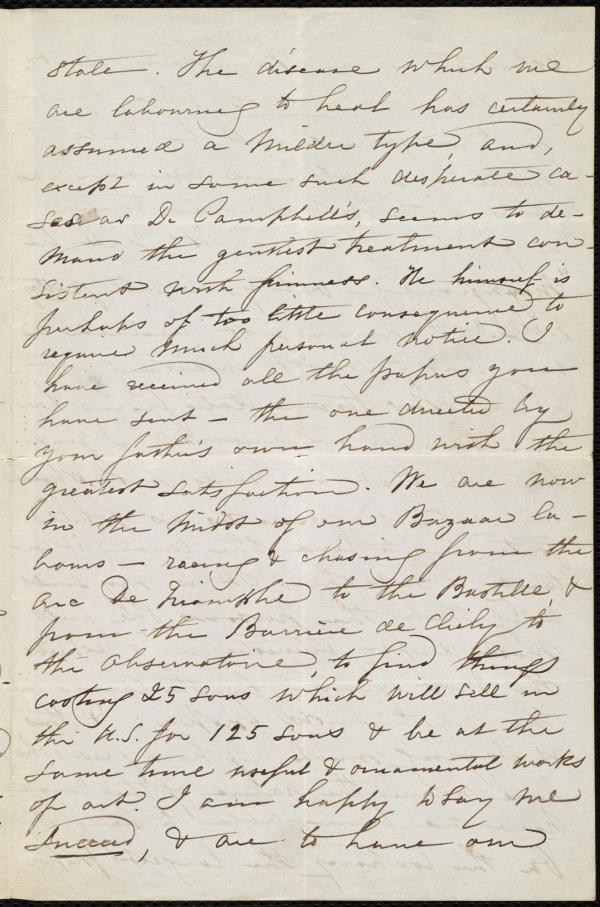 state. The disease which we
are labouring to heal has certainly
assumed a milder type, and,
except in some such desperate ca-
ses as Dr Campbell's, seems to de-
mand the gentlest treatment con-
sistent with firmness. He himself is
perhaps of too little consequence to
require much personal notice. I
have received all the papers you
have sent – the one directed by
your father's own hand with the
greatest satisfaction. We are now
in the midst of our Bazaar la-
bours – racing & chasing from the
Arc De Triomphe to the Bastille, &
from the Barrière de Clichy to
the Observatoire, to find things
costing 25 sous which will sell in
the U.S. for 125 sous & be at the
same time useful & ornamental works
of art. I am happy to say we
succeed, & are to have our